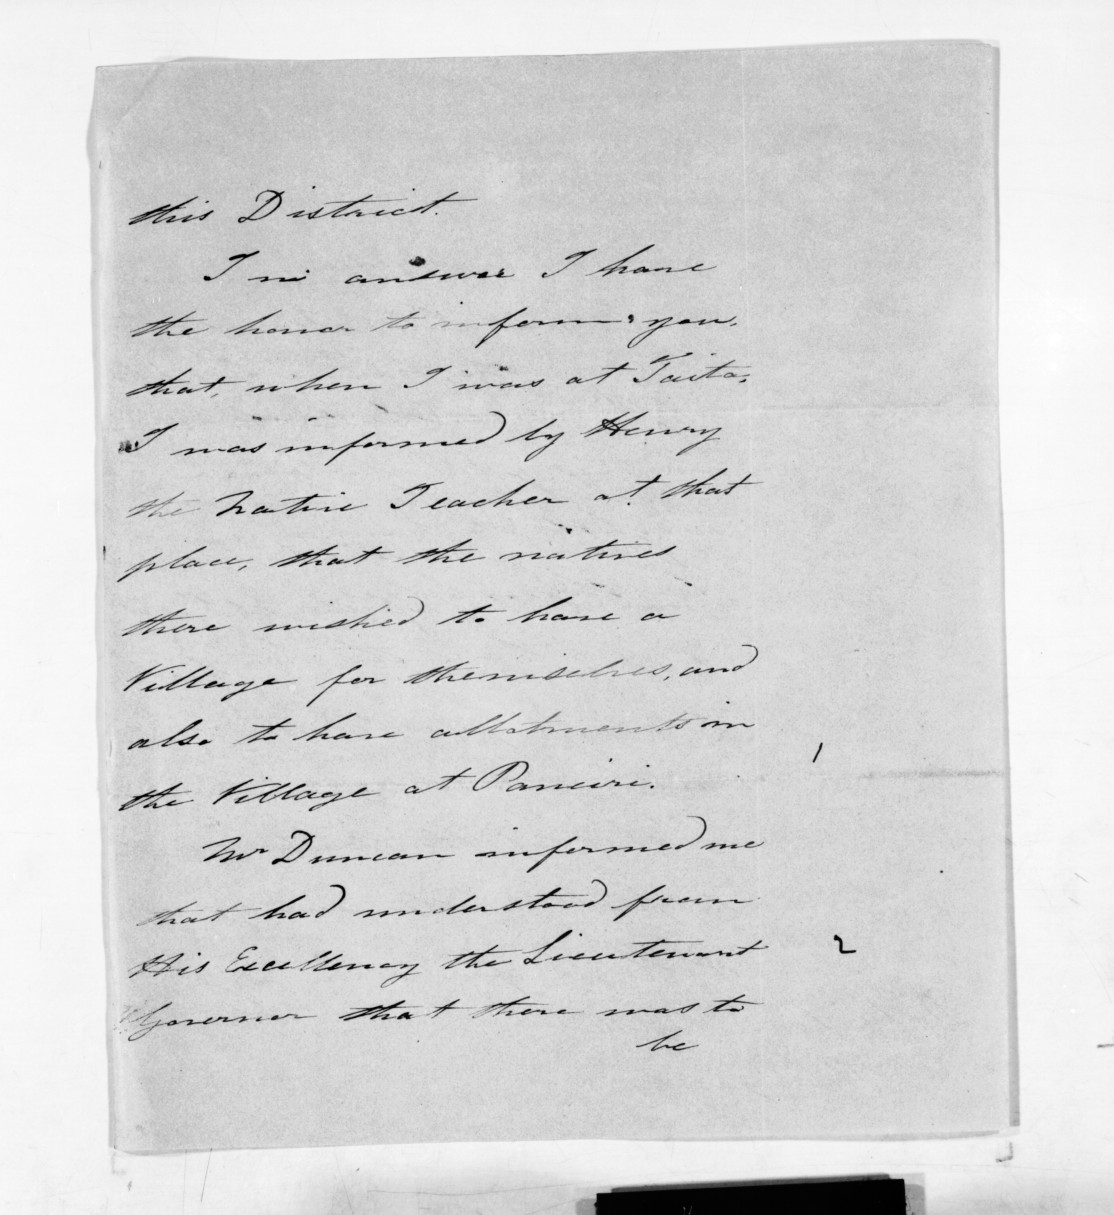 this District.
I in answer I have
the honor to inform you,
that, when I was at Taita,
I was informed by Henry
the Native Teacher at that
place, that the natives
there wished to have a
Village for themselves, and
also to have allotments in
the Village at Parieiri.
1
Mr Duncan informed me
that had understood from
His Excellency the Lieutenant
2
Governor that there was to
be